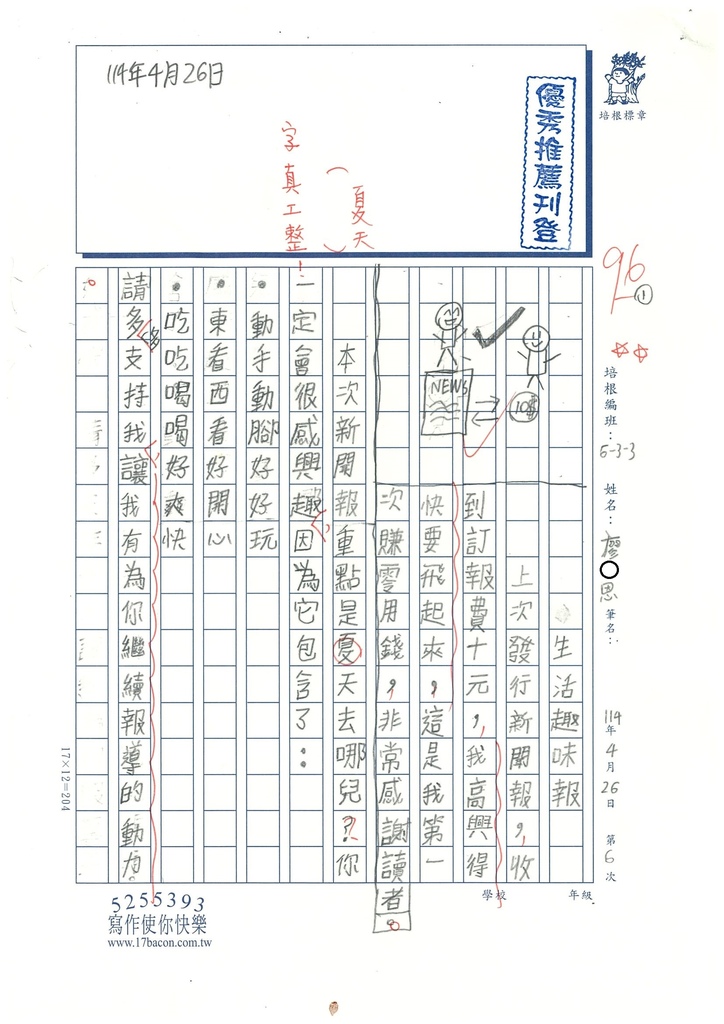 114年4月26日
優秀推薦刊登
培根標章
(夏天)
字真工整!
96
①
培根編班:
5-3-3
姓名:廖○思
筆名:
114年4月26日
第6次
年級
學校
生活趣味報
上次發行新聞報,收
到訂報費十元,我高興得
快要飛起來,這是我第一
次賺零用錢,非常感謝讀者。
NEWS
10$
本次新聞報重點是夏天去哪兒?你
一定會很感興趣,因為它包含了:
•動手動腳好好玩
•東看西看好開心
•吃吃喝喝好爽快
請多多支持我,讓我有為你繼續報導的動力
。
17×12=204
5255393
寫作使你快樂
www.17bacon.com.tw